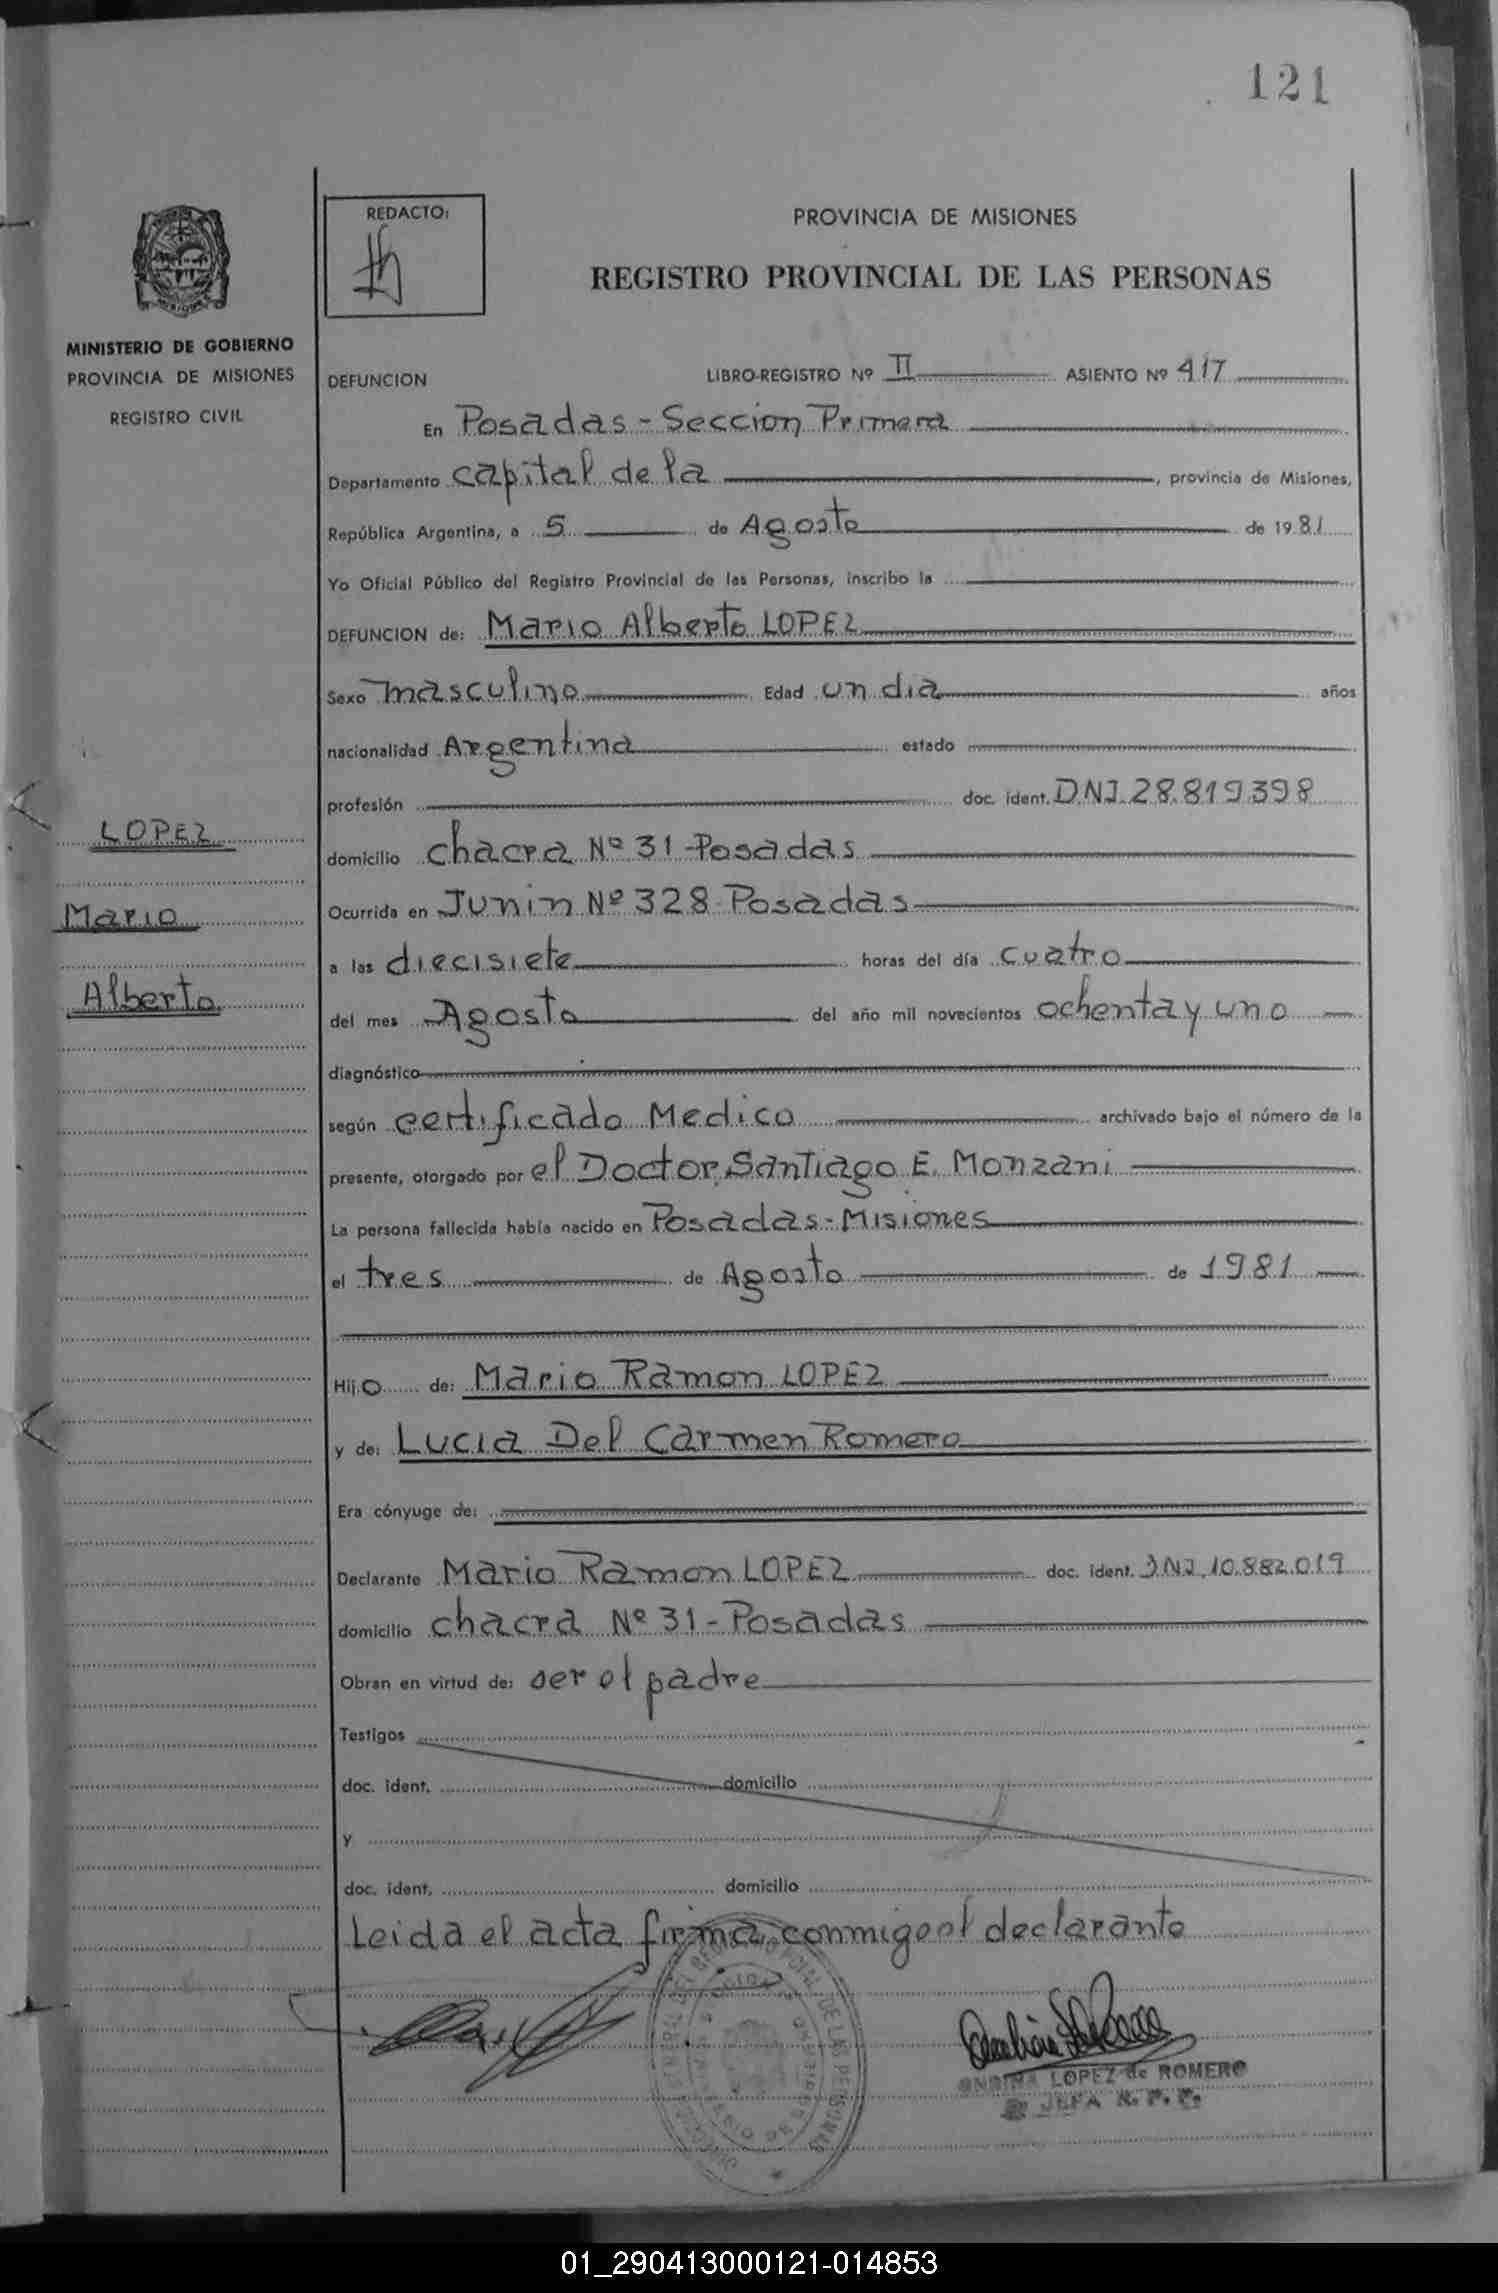 121
REDACTO:
PROVINCIA DE MISIONES
REGISTRO PROVINCIAL DE LAS PERSONAS
MINISTERIO DE GOBIERNO
PROVINCIA DE MISIONES
REGISTRO CIVIL
DEFUNCION LIBRO-REGISTRO Nº II ASIENTO Nº 417
En Posadas - Seccion Primera
Departamento capital de la, provincia de Misiones,
República Argentina, a 5 de Agosto de 1981
Yo Oficial Público del Registro Provincial de las Personas, inscribo la
DEFUNCION de: Mario Alberto LOPEZ
Sexo masculino Edad un dia años
nacionalidad Argentina estado
profesión doc. ident. DNI.28.819.398
LOPEZ
domicilio chacra Nº 31 - Posadas
Mario
Ocurrida en Junin Nº 328 - Posadas
a las diecisiete horas del día cuatro
Alberto
del mes Agosto del año mil novecientos ochenta y uno
diagnóstico
según certificado Medico archivado bajo el número de la
presente, otorgado por el Doctor Santiago E. Monzani
La persona fallecida había nacido en Posadas - Misiones
el tres de Agosto de 1981
Hijo de: Mario Ramon LOPEZ
y de: Lucia Del Carmen Romero
Era cónyuge de:
Declarante Mario Ramon LOPEZ doc. ident. DNI.10.882.019
domicilio chacra Nº 31 - Posadas
Obran en virtud de: ser el padre
Testigos
doc. ident. domicilio
y
doc. ident. domicilio
Leida el acta firma conmigo el declarante
LOPEZ de ROMERO
JEFA R. P. P.
01_290413000121-014853